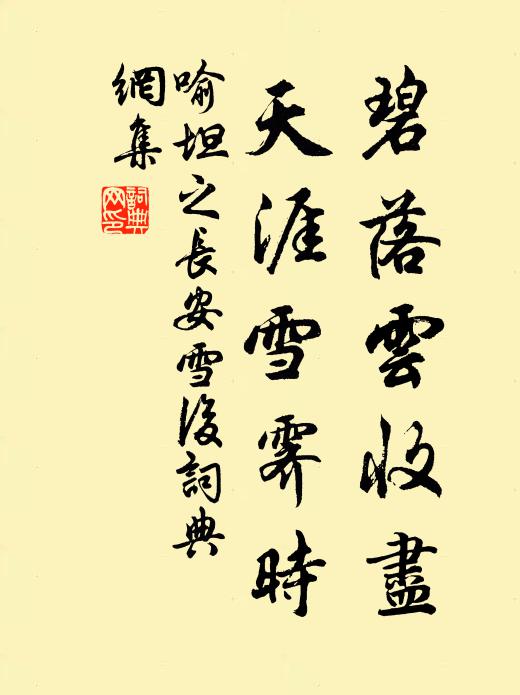 碧落雲收盡
天涯雪霽時
喻坦之長安雪後詞典
網集
詞典
网印